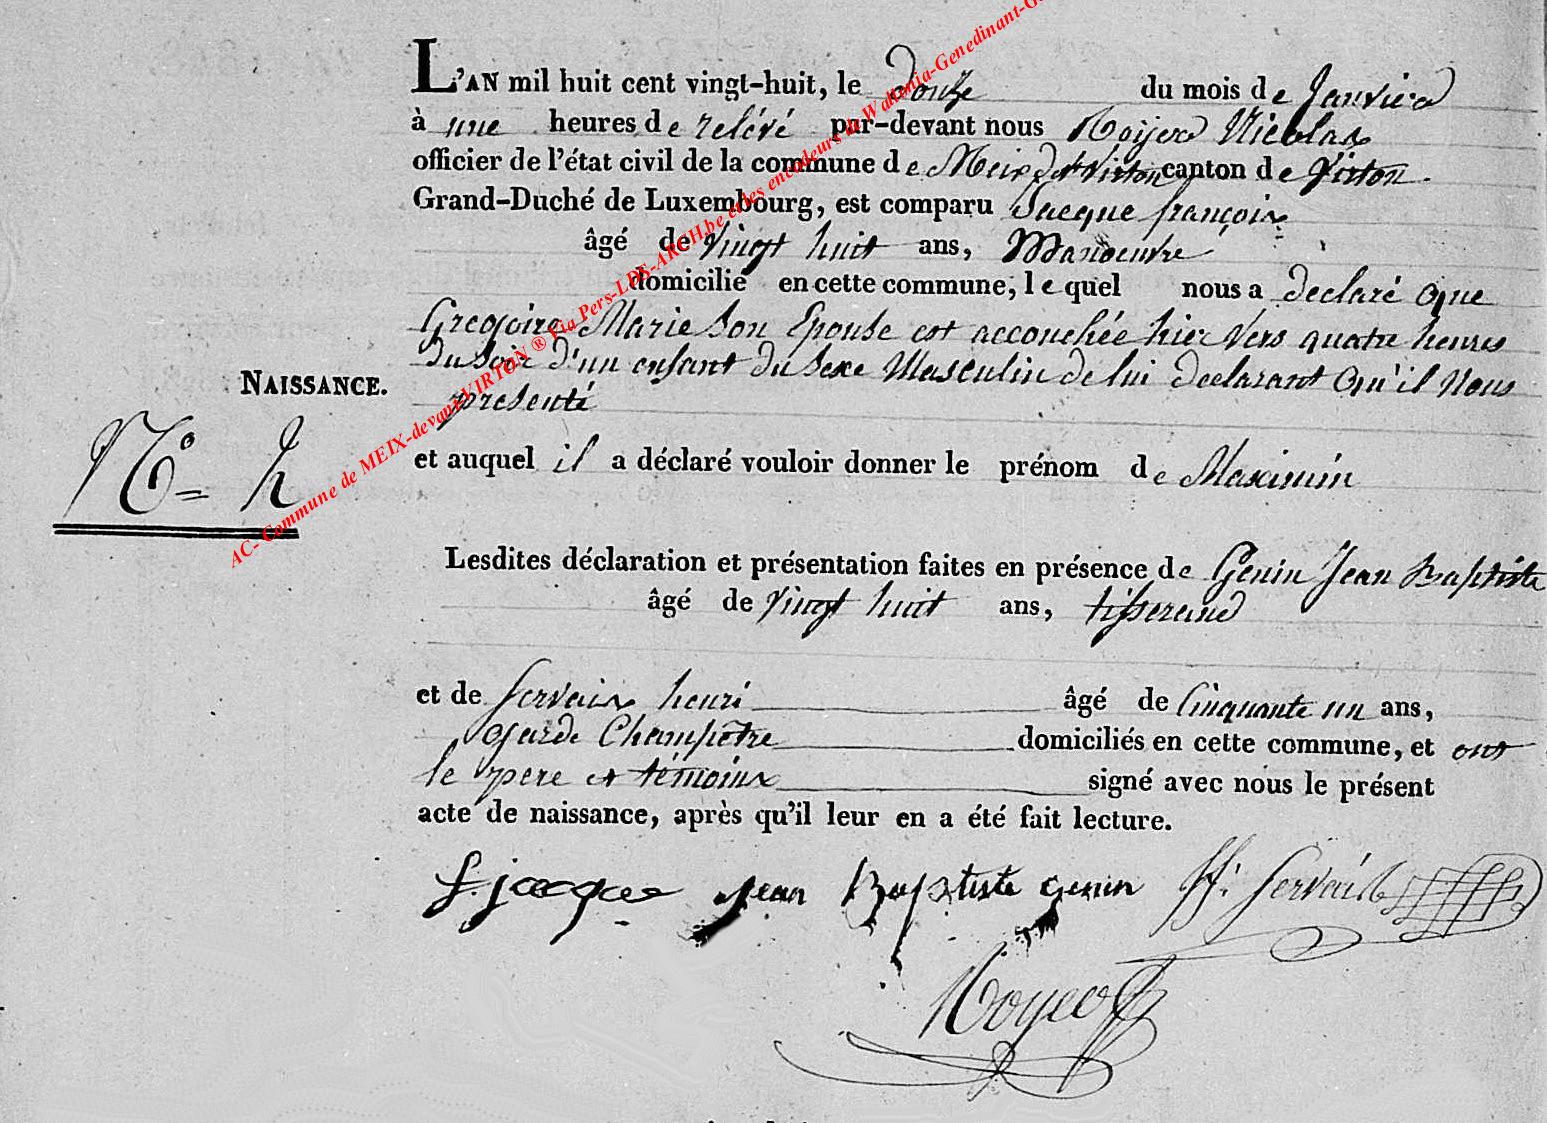 L'AN mil huit cent vingt-huit, le douze du mois de Janvier
à une heures de relévé par-devant nous Royer Nicolas
officier de l'état civil de la commune de Meix dvt Virton canton de Virton.
Grand-Duché de Luxembourg, est comparu Jacque françois
âgé de vingt huit ans, Manoeuvre
domicilié en cette commune, le quel nous a declaré que
Gregoire Marie son Epouse est accouchée hier vers quatre heures
du soir d'un enfant du sexe Masculin de lui declarant qu'il nous
NAISSANCE.
presenté
No = 4
et auquel il a déclaré vouloir donner le prénom de Maximin
Lesdites déclaration et présentation faites en présence de Genin Jean Baptiste
âgé de vingt huit ans, tisserand
et de Servais henri âgé de Cinquante un ans,
garde Champêtre domiciliés en cette commune, et ont
le pere et témoins signé avec nous le présent
acte de naissance, après qu'il leur en a été fait lecture.
f. jacque Jean Baptiste Genin H. Servais
Royer
AC- Commune de MEIX-devant-VIRTON ® Via Pers-LDS-ARCH.be et les encodeurs de Wallonia-Genedinant-G